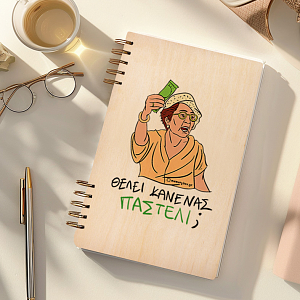 ΘΕΛΕΙ ΚΑΝΕΝΑΣ
ΠΑΣΤΕΛΙ ;